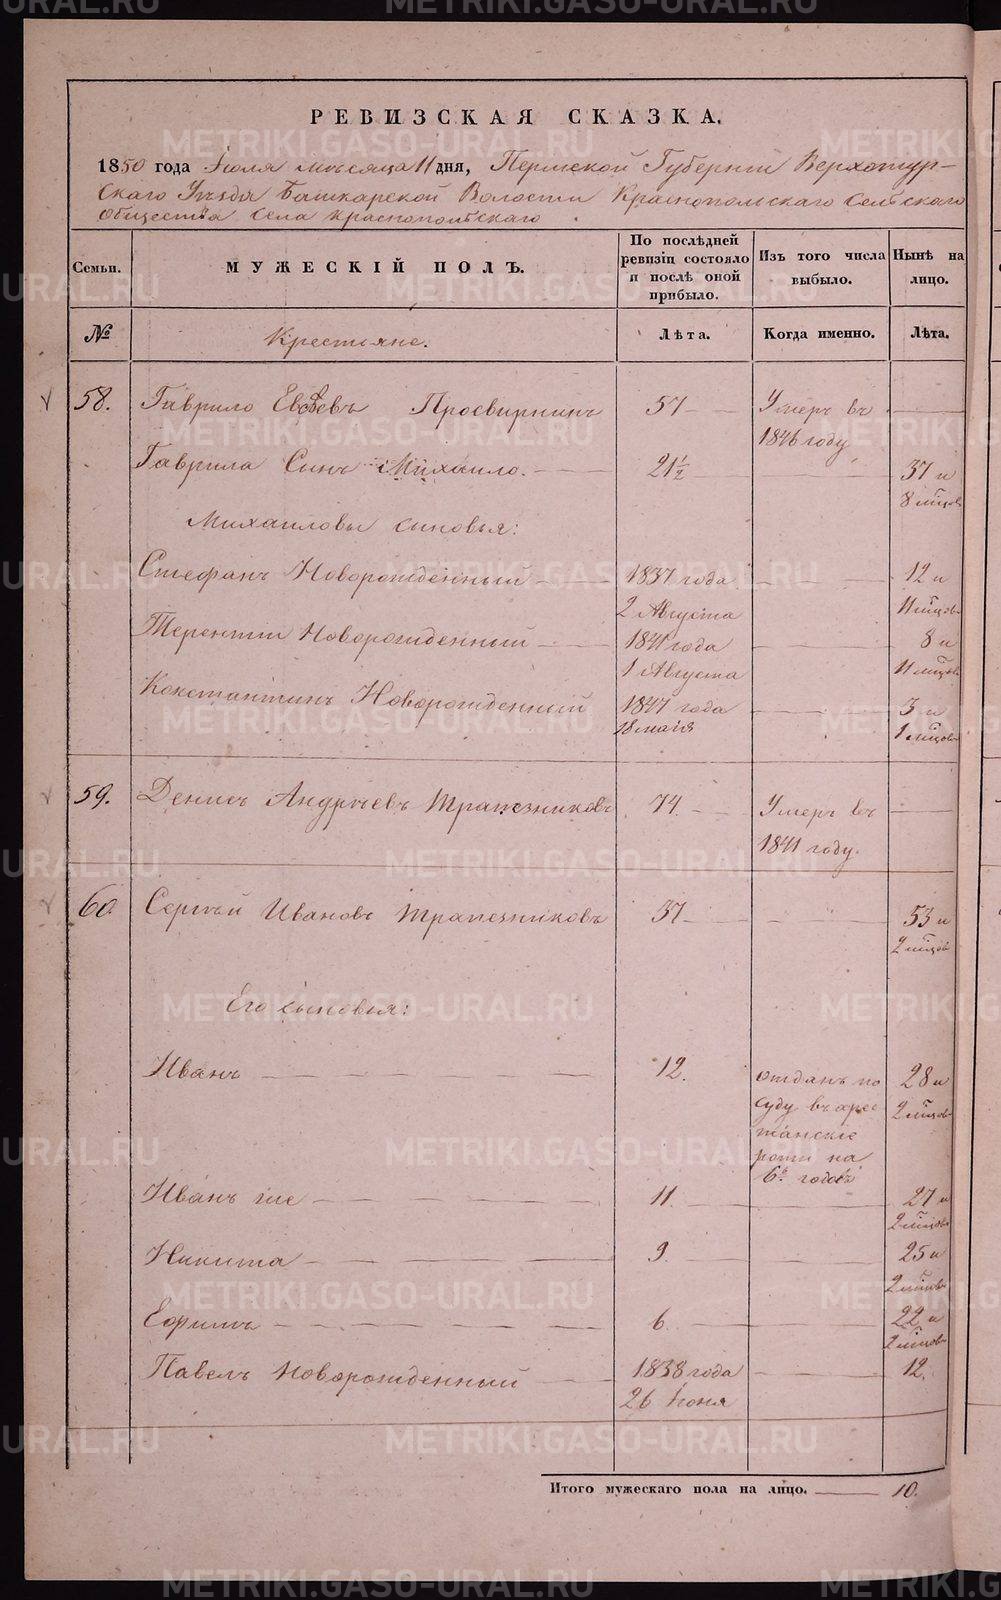 РЕВИЗСКАЯ СКАЗКА.
1850 года Іюля мѣсяца 11 дня, Пермской Губерніи Верхотур-
скаго Уѣзда Башкарской Волости Краснопольскаго Сельскаго
общества села краснопольскаго
Семьи. МУЖЕСКІЙ ПОЛЪ. По послѣдней ревизіи состояло и послѣ оной прибыло. Изъ того числа выбыло. Нынѣ на лицо.
№ Крестьяне. Лѣта. Когда именно. Лѣта.
58. Гаврило Евсѣевъ Просвирнинъ 57 Умеръ въ
1846 году
Гаврила Сынъ Михаило. 21½ 37 и
8 мѣцов
Михаиловы сыновья:
Стефанъ Новорожденный 1837 года 12 и
2 Августа 11 мѣцов
Терентій Новорожденный 1841 года 8 и
1 Августа 11 мѣцов
Константинъ Новорожденный 1847 года 3 и
18 маія 1 мѣцов
59. Денисъ Андрѣевъ Трапезниковъ 74 Умеръ въ
1841 году.
60. Сергѣй Ивановъ Трапезниковъ 37 53 и
2 мѣцов
Его сыновья:
Иванъ 12. отданъ по 28 и
суду въ арес 2 мѣцов
танскіе
роты на
6ь годовъ
Иванъ же 11. 27 и
2 мѣцов
Никита 9. 25 и
2 мѣцов
Ефимъ 6. 22 и
2 мѣцов
Павелъ Новорожденный 1838 года 12.
26 Іюня
Итого мужескаго пола на лицо. 10.
METRIKI.GASO-URAL.RU